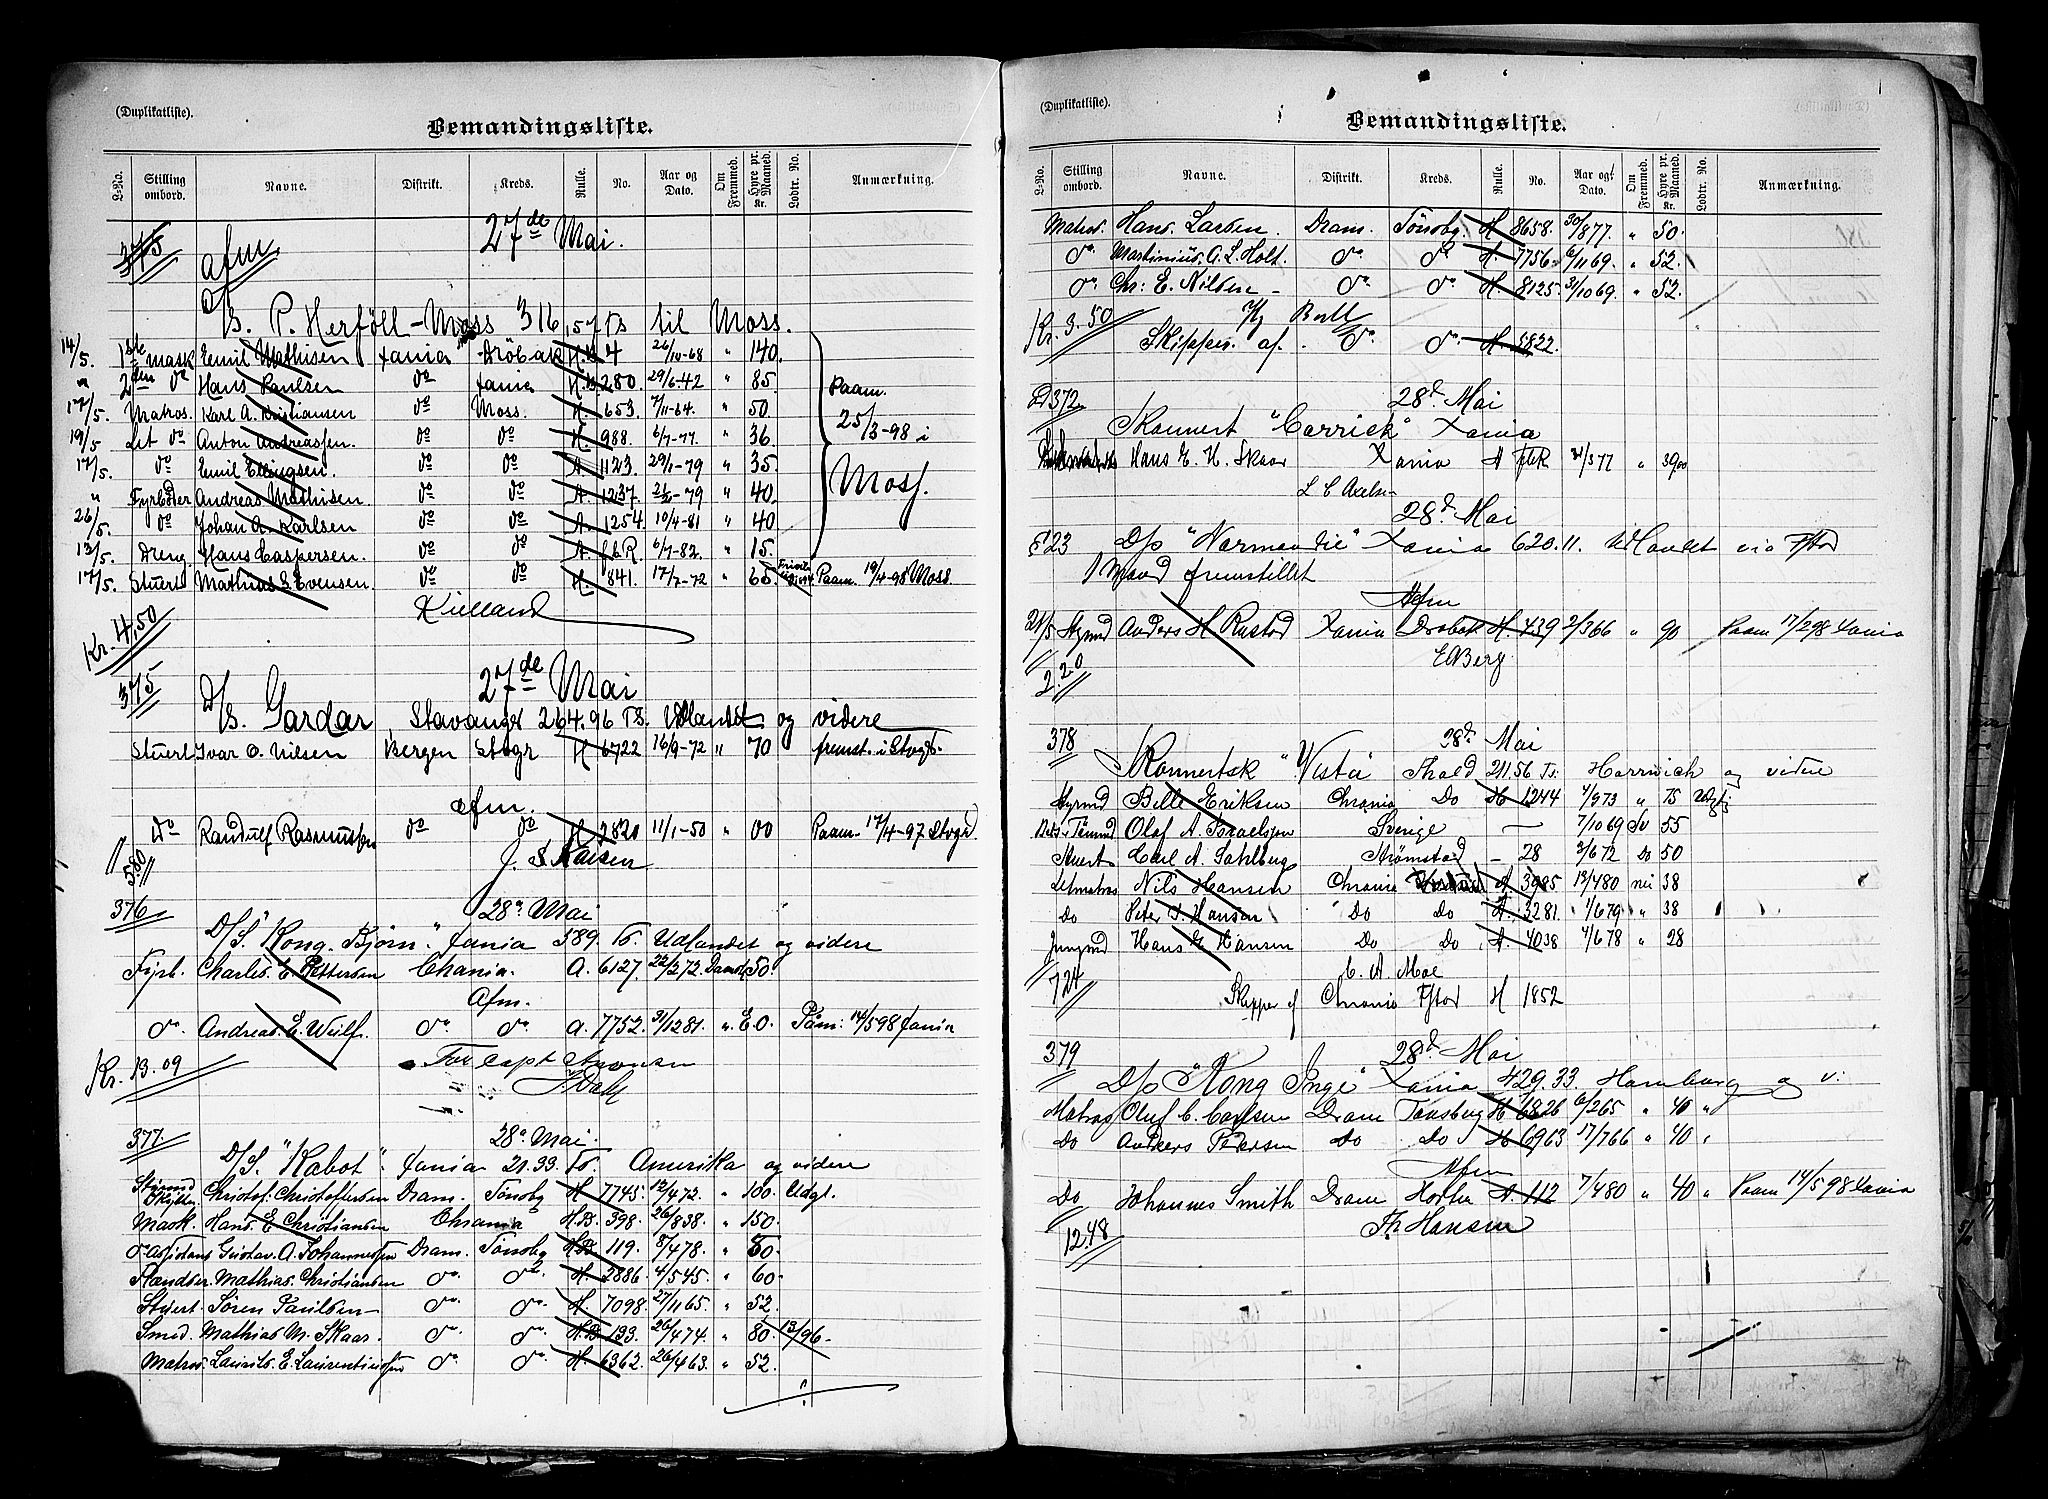 (Duplikatliste).
Bemandingsliste.
L-No. Stilling ombord. Navne. Distrikt. Kreds. Rulle. No. Aar og Dato. Om Fremmed. Hyre pr. Maaned. Kr. Lodtr. No. Anmærkning.
27de Mai.
afm
S. P. Herföll - Moss 316,57 Ts til Moss.
14/5. 1ste mask Emil Mathisen Xania Dröbak H.B. 4 26/10-68 " 140.
" 2den do Hans Paulsen do Xania H.B. 280. 29/6-42 " 85. Paam.
17/5. Matros. Karl A. Kristiansen do Moss. H. 653. 7/11-64. " 50. 25/3-98 i
19/5 Let do Anton Andreassen. do do H. 988. 6/7-77. " 36.
17/5. do Emil Ellingsen. do do A. 1123. 29/1-79 " 35. Moss.
" Fyrböder Andreas Mathisen do do A. 1237. -79 " 40.
26/5. do Johan A. Karlsen do do A. 1254. 10/4-81 " 40
13/5. Dreng. Hans Caspersen. do do A. f.b.R 6/7-82. " 15.
17/5. Stuert Mathias E. Evensen do do H. 841. 17/7-72 " 65. Paam. 19/4-98 Moss.
Kielland
Kr. 4.50
375 27de Mai
D/S. Gardar, Stavanger 264.96 TS. Udlandet og videre
Stuert Ivar O. Nilsen Bergen Stvgr H 6722 16/9-72 " 70 fremst. i Stvgr.
afm.
do Randulf Rasmussen do do H 2820 11/1-50 " 00 Paam. 17/4-97 Stvgr.
5.80
376 28de Mai
D/S. "Kong Bjørn" Xania 589. Ts. Udlandet og videre
Fyrb. Charles. E. Pettersen Chania. A. 6127. 22/272. Dansk 50.
Afm.
do. Andreas. E. Wulf. do. do. A. 7752. 31/1281. " 60. Påm: 14/598 Xania
Kr. 13.09 For Capt Aronsen
Dahl
377. 28de Mai.
D/S. "Kabot". Xania 21.33. Ts. Amerika og videre
Styrmd Skytter. Christof: Christoffersen Dram. Tönsbg H 7745. 12/472. " 100. Udgt.
Mask. Hans. E. Christiansen Chrania H.B. 398. 26/838. " 150.
do assistans Gustav. A. Johannessen Dram. Tönsbg H.B. 119. 8/478. " 80.
Mathias. Christiansen do. do. H. 2886. 4/545. " 60.
Stuert. Søren Paulsen do. do. H 7098. 27/1165. " 52.
Smed. Mathias M. Skaar. do. do. H.B. 133. 26/474. " 80. 13/96.
Matros. Laurits. E. Laurentiussen do. do. H. 6362. 26/463. " 52.
(Duplikatliste).
Bemandingsliste.
L-No. Stilling ombord. Navne. Distrikt. Kreds. Rulle. No. Aar og Dato. Om Fremmed. Hyre pr. Maaned. Kr. Lodtr. No. Anmærkning.
Matros. Hans. Larsen. Dram. Tönsbg. H. 8658. 30/877. " 50.
do. Martinius. A. L. Holt. do. do. H. 7756. 6/1169. " 52.
do. Chr: E. Nilsen do. do. H. 8125. 31/1069. " 52.
Kr. 3.50 Bull
Skipper af. do. do. H. 5822.
372 28de Mai
Skonnert "Carrick" Xania
Hans E. H. Skaar Xania A fbR 21/377 " 3900
L C Axelsen
28de Mai
523 D/S "Normandie" Xania 620.11. Udlandet via Fstad
1 Mand fremstillet
Afm
21/5 Styrmd Anders H. Rustad Xania Drøbak H. 439 2/366 " 90 Paam 17/298 Xania
2.20 E Berg
378 28de Mai
Skonnertsk "Vesta" Shald 211.56 Ts. Harrwich og videre
Styrmd Bille Eriksen Chrania Do H 1244 4/973 " 75
Tömmd Olaf A. Israelsson Sverige — 7/1069 Sv 55
Stuert Carl A. Sahlberg Strømstad - 28 3/672 Do 50
Letmatros Nils Hansen Chrania A 3985 13/480 nei 38
Do Peter S. Hansen Do Do A. 3281. 1/679 " 38
Jungmd Hans E. Hansen Do Do A. 4038 4/678 " 28
724 C. A. Moe
Skipper af Chrania Fstad H 1852
379 28de Mai
D/S "Kong Inge" Xania 429.33. Hamburg og v:
Matros Oluf C. Carlsen Dram Tønsberg H 6826 6/265 " 40 "
Do Anders Pedersen Do Do H 6963 17/766 " 40 "
Afm
Do Johannes Smith Dram Horten A 112 7/480 " 40 " Paam 14/598 Xania
12.48 Th Hansen